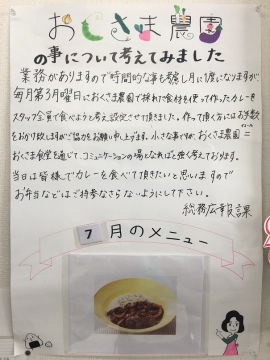 おくさま農園
の事について考えてみました
業務がありますので時間的な事も考慮し月に1度になりますが、
毎月第3月曜日におくさま農園で採れた食材を使って作ったカレーを
スタッフ全員で食べようと考え設定させて頂きました。作って頂く方にはお手数
をおかけ致しますがご協力をお願い申し上げます。小さな事ですが、おくさま農園=
おくさま食堂を通じて、コミュニケーションの場となればと強く考えております。
当日は皆様でカレーを食べて頂きたいと思いますので
お弁当などはご持参なさらないようにして下さい。
総務広報課
7月のメニュー